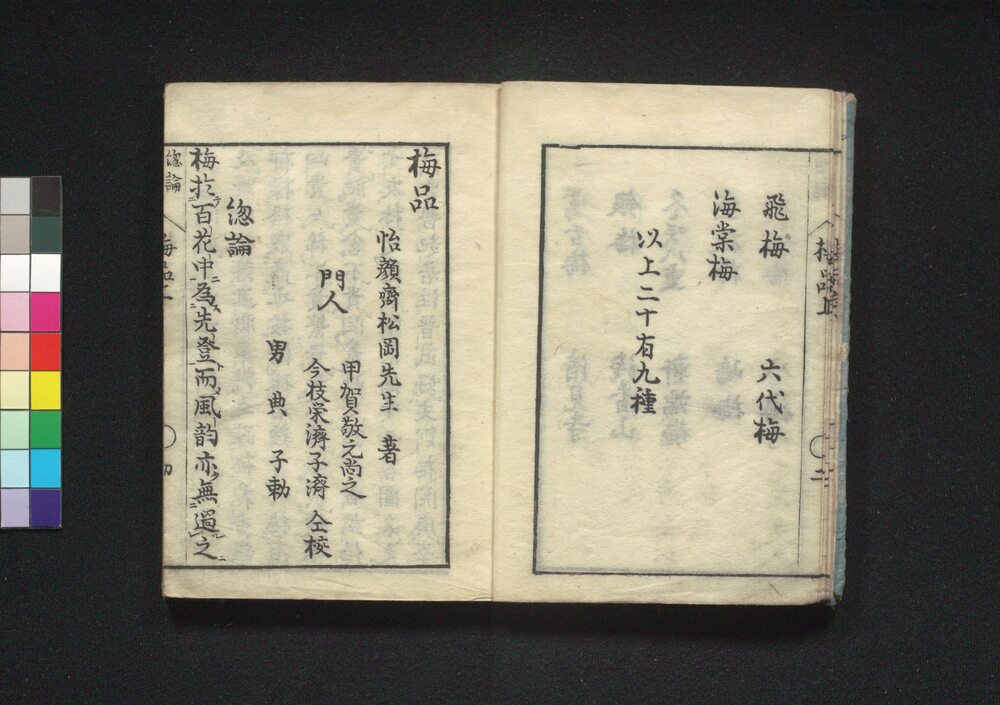 飛梅 六代梅
海棠梅
以上二十有九種
二
梅品
怡顔齋松岡先生 著
甲賀敬元尚之
門人
今枝栄濟子濟 仝校
男 典 子勅
惣論
梅於百花中為先登而風韵亦無過之
惣論